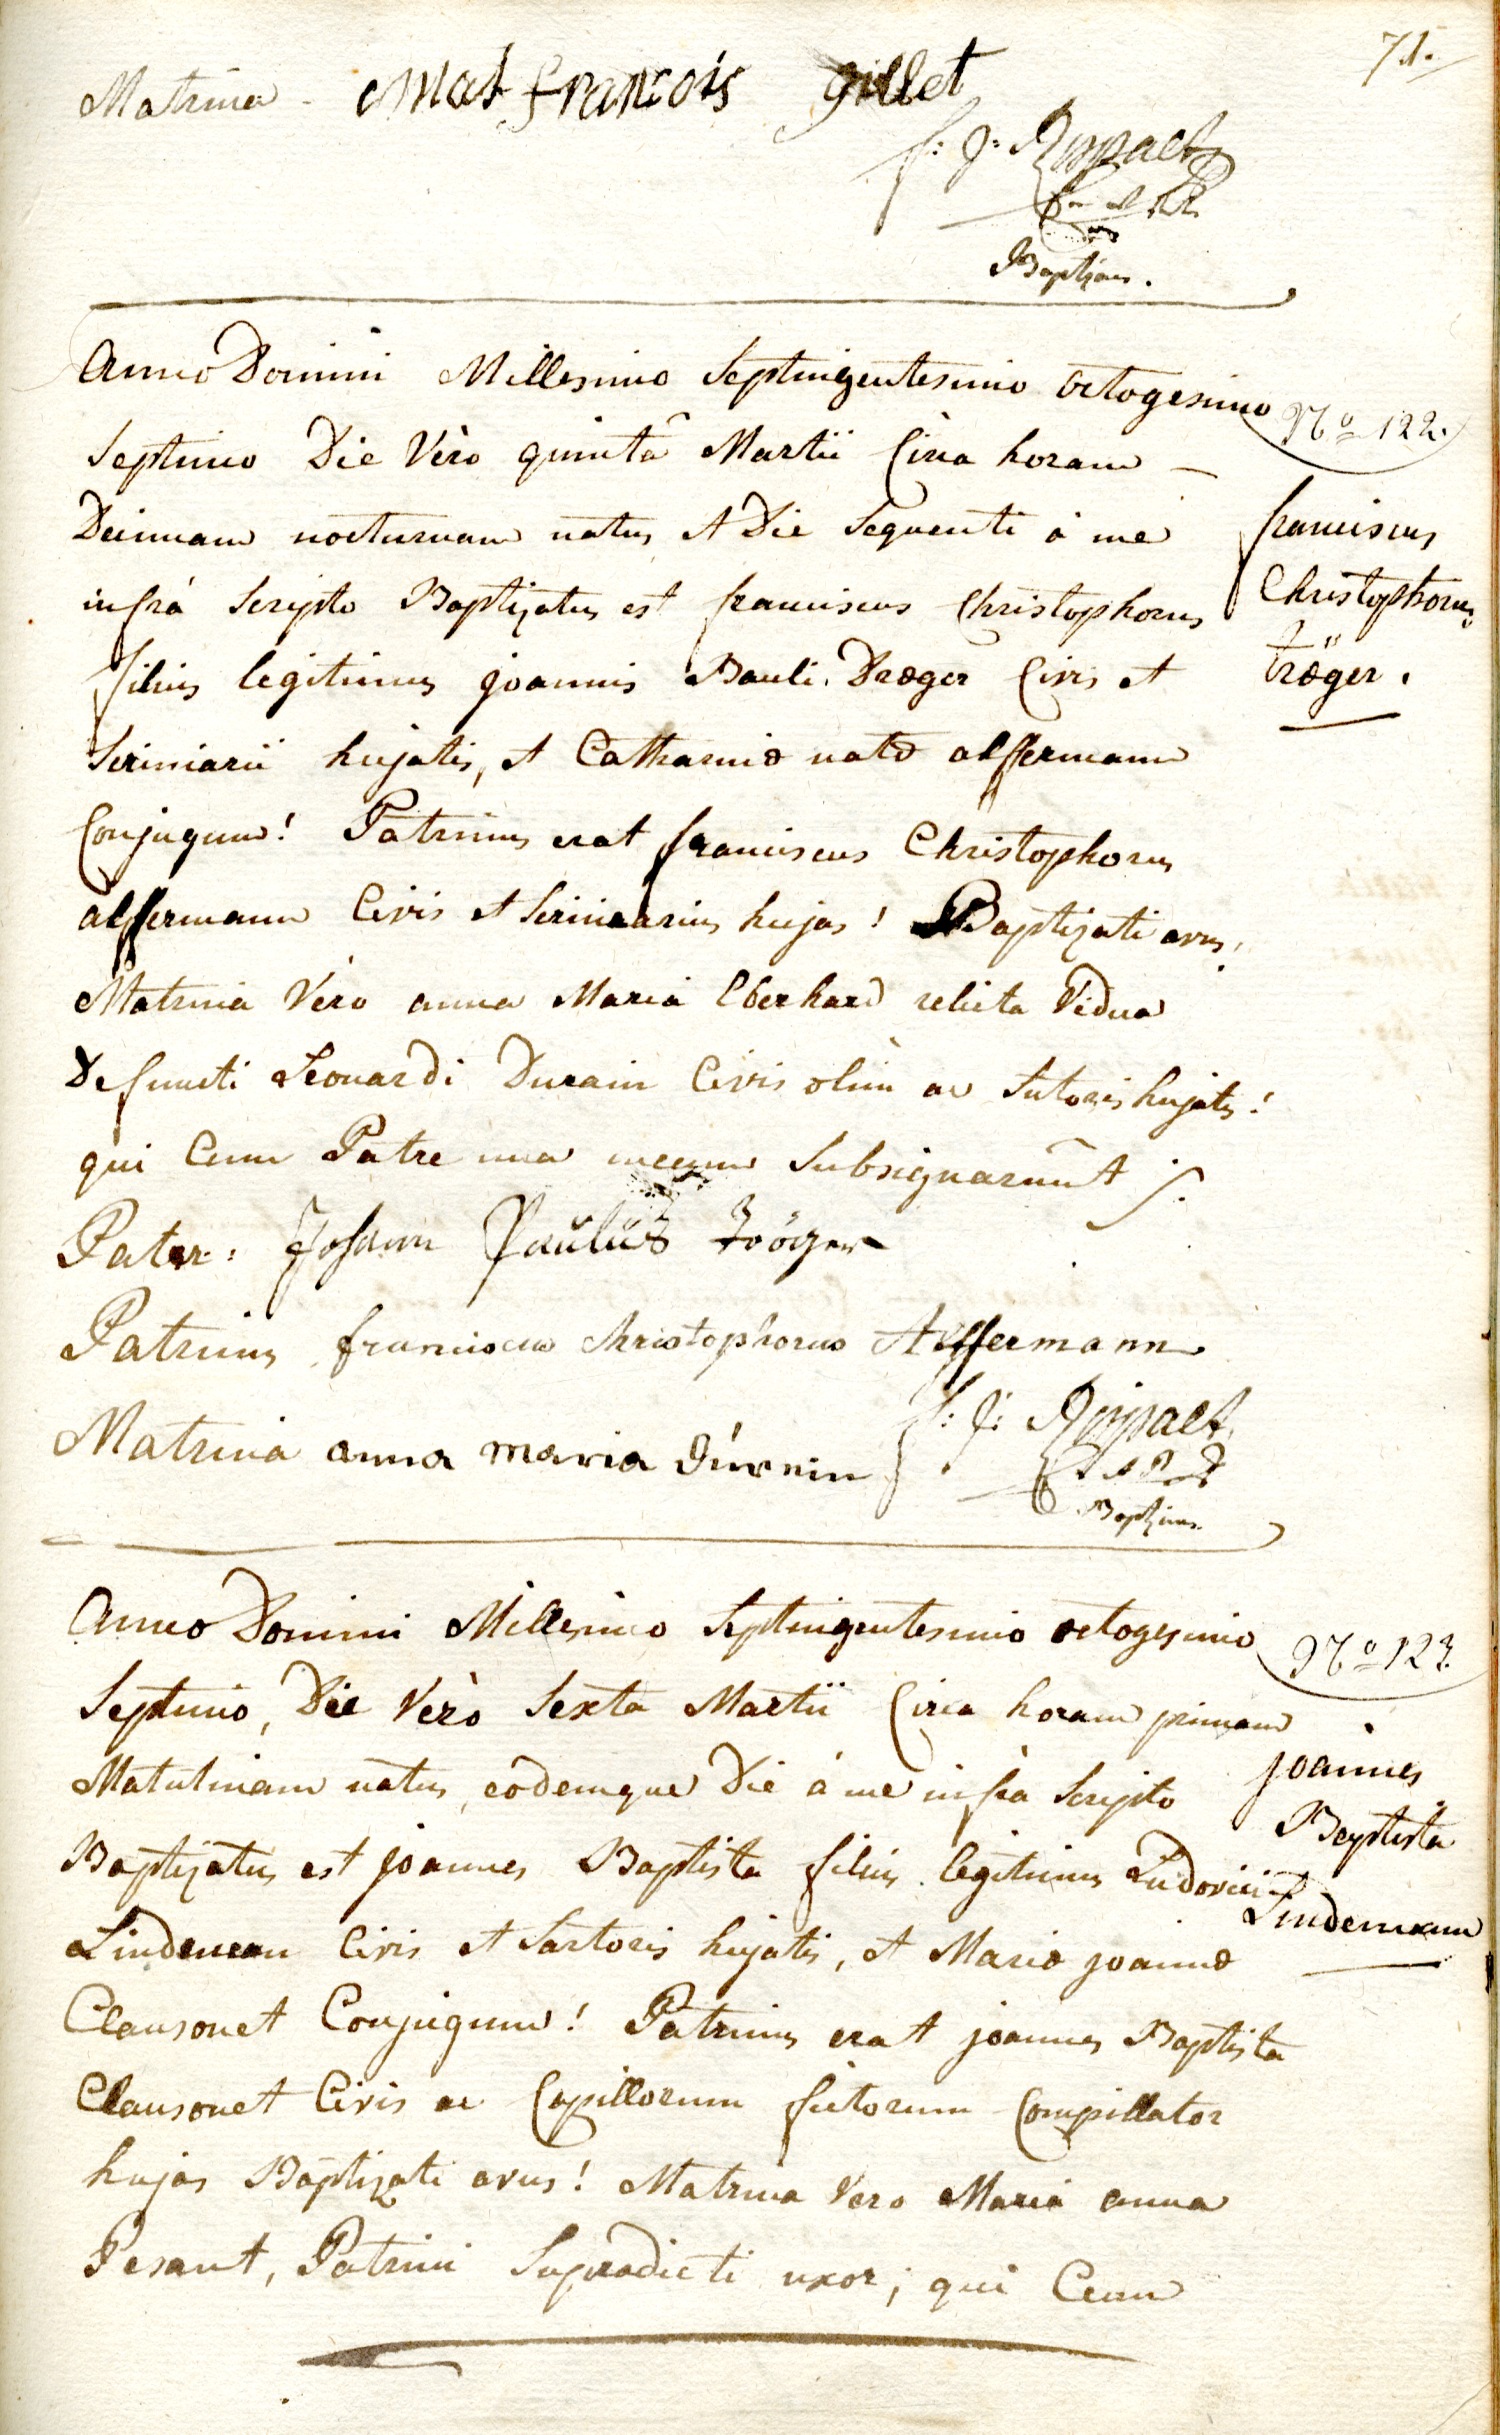 71.
Matrina - Mat françois gillet
f: J: Rippact
Baptizans.
Anno Domini Millesimo Septingentesimo octogesimo
Nº 122.
Septimo Die Vèro quintâ Martii Circa horam —
Decimam nocturnam natus, et Die Sequenti à me
infrà Scripto Baptizatus est franciscus Christophorus
filius legitimus joannis Pauli Dræger Civis et
Scriniarii hujatis, et Catharinæ natæ alffermann
Conjugum! Patrinus erat franciscus Christophorus
alffermann Civis et Scriniarius hujas! Baptizati avus,
Matrina Vèro anna Maria Eberhard relicta Vidua
Defuncti Leonardi Durain Civis olim ac Sutoris hujatis!
qui Cum Patre una mecum Subsignarunt
franciscus
Christophorus
träger.
Pater: Johann Paulus Tröger
Patrinus franciscus christophorus Alffermann
Matrina anna maria dúrein
f: J: Rippact
Baptizans
Anno Domini Millesimo Septingentesimo octogesimo
Nº 123.
Septimo, Die Vèrò Sexta Martii Circa horam primam
Matutinam natus, eodemque Die à me infrà Scripto
Baptizatus est joannes Baptista filius legitimus Ludovici
Lindeman Civis et Sartoris hujatis, et Mariæ joannæ
Clausonet Conjugum! Patrinus erat joannes Baptista
Clausonet Civis ac Capillorum fictorum Compillator
hujas Baptizati avus! Matrina Vero Maria anna
Pesant, Patrini Supradicti uxor; qui Cum
joannes
Baptista
Lindemann